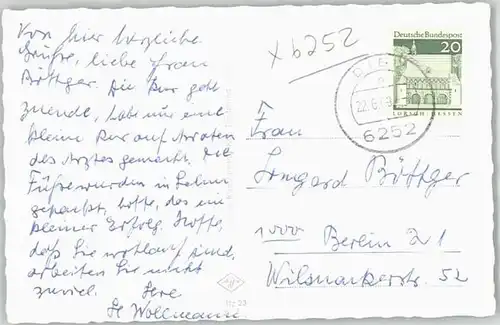 Von hier herzliche
Grüße, liebe Frau
Böttger. Die Kur geht
zuende, habe nur eine
kleine Kur auf Anraten
des Arztes gemacht. Die
Füße wurden in Lehm
gepackt, hoffe, das ein
kleiner Erfolg. Hoffe,
daß Sie wohlauf sind,
arbeiten Sie nicht
zuviel. Ihre
Wollmann
x 6252
Deutsche Bundespost
20
LORSCH/HESSEN
DIE
22.6.69
6252
Frau
Irmgard Böttger
1000 Berlin 21
Wilsnackerstr. 52